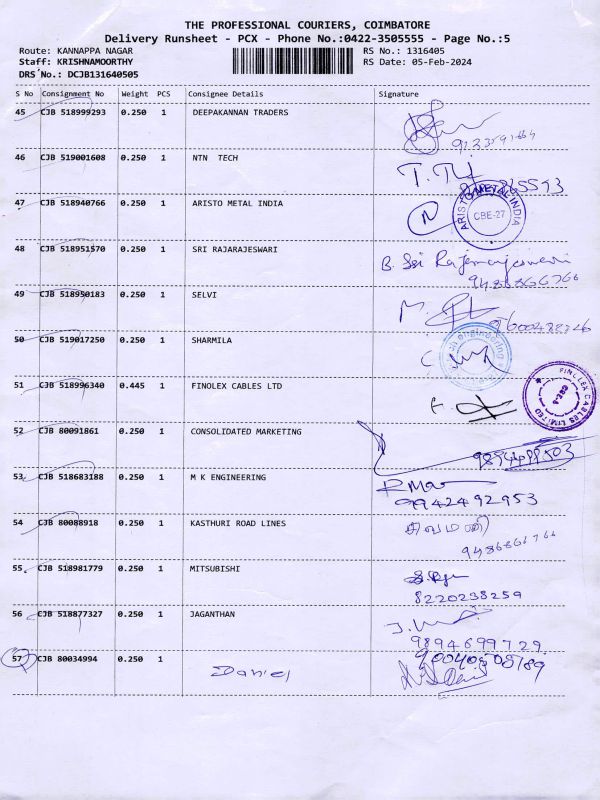 THE PROFESSIONAL COURIERS, COIMBATORE
Delivery Runsheet - PCX - Phone No.:0422-3505555 - Page No.:5
Route: KANNAPPA NAGAR RS No.: 1316405
Staff: KRISHNAMOORTHY RS Date: 05-Feb-2024
DRS No.: DCJB131640505
S No Consignment No Weight PCS Consignee Details Signature
45 CJB 518999293 0.250 1 DEEPAKANNAN TRADERS
46 CJB 519001608 0.250 1 NTN TECH
47 CJB 518940766 0.250 1 ARISTO METAL INDIA
ARISTO METAL INDIA
CBE-27
48 CJB 518951570 0.250 1 SRI RAJARAJESWARI
B. Sri Rajarajeswari
9486866766
49 CJB 518950183 0.250 1 SELVI
50 CJB 519017250 0.250 1 SHARMILA
51 CJB 518996340 0.445 1 FINOLEX CABLES LTD
FINOLEX CABLES LIMITED
52 CJB 80091861 0.250 1 CONSOLIDATED MARKETING
53 CJB 518683188 0.250 1 M K ENGINEERING
9942492953
54 CJB 80088918 0.250 1 KASTHURI ROAD LINES
சிவமணி
9486866766
55 CJB 518981779 0.250 1 MITSUBISHI
8220238259
56 CJB 518877327 0.250 1 JAGANTHAN
9894699729
57 CJB 80034994 0.250 1
Daniel